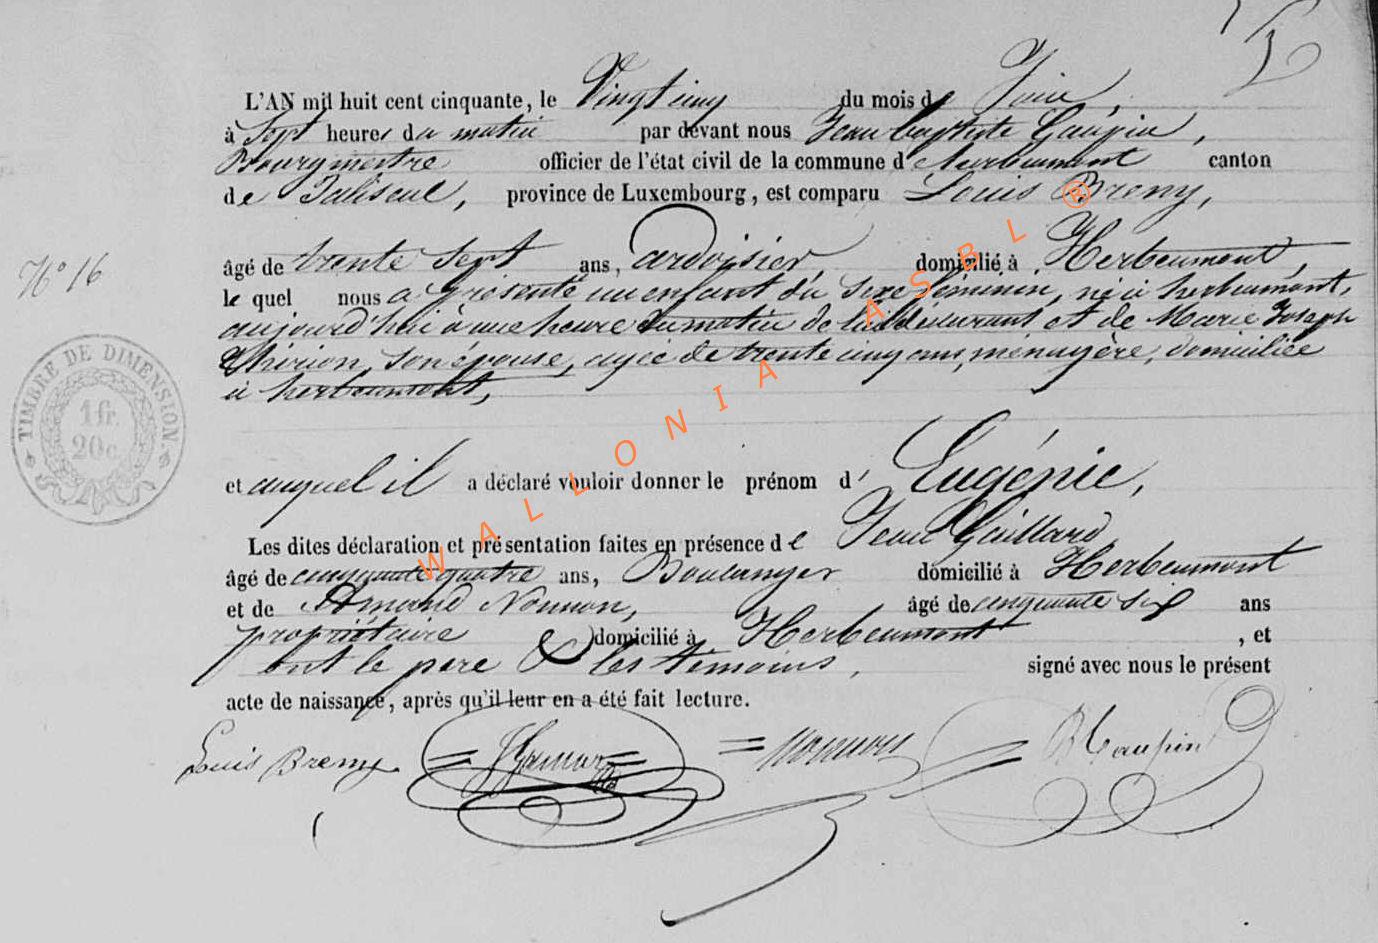 L'AN mil huit cent cinquante, le Vingt cinq du mois de Juin,
à Sept heures du matin par devant nous Jean baptiste Gaupin,
Bourgmestre officier de l'état civil de la commune d'herbeumont canton
de Paliseul, province de Luxembourg, est comparu Louis Bremy,
N° 16
âgé de trente sept ans, ardoisier, domicilié à Herbeumont,
le quel nous a présenté un enfant du sexe féminin, né à herbeumont,
aujourd'hui à une heure du matin de lui déclarant et de Marie Joseph
Thirion, son épouse, agée de trente cinq ans, ménagère, domiciliée
à herbeumont,
TIMBRE DE DIMENSION.
1 fr.
20 c.
et auquel il a déclaré vouloir donner le prénom d' Eugénie,
Les dites déclaration et présentation faites en présence de Jean Guillard
âgé de cinquante quatre ans, Boulanger domicilié à Herbeumont
et de Armand Nonnon, âgé de cinquante six ans
propriétaire domicilié à Herbeumont, et
ont le père & les témoins, signé avec nous le présent
acte de naissance, après qu'il leur en a été fait lecture.
Louis Bremy Nonnon
WALLONIA ASBL ®